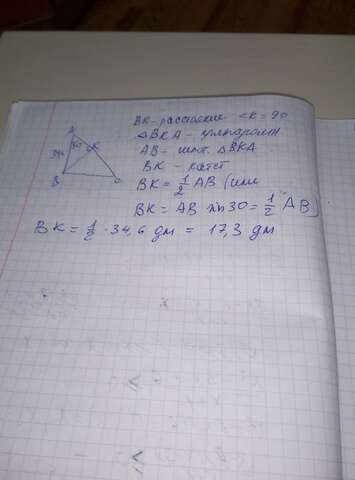 BK - расстояние <K = 90
△BKA - прямоуголн
AB - гипот. △BKA
BK - катет
BK = 1/2 AB (или
BK = AB sin 30 = 1/2 AB)
BK = 1/2 · 34,6 дм = 17,3 дм
A
30
K
34,6
B
C